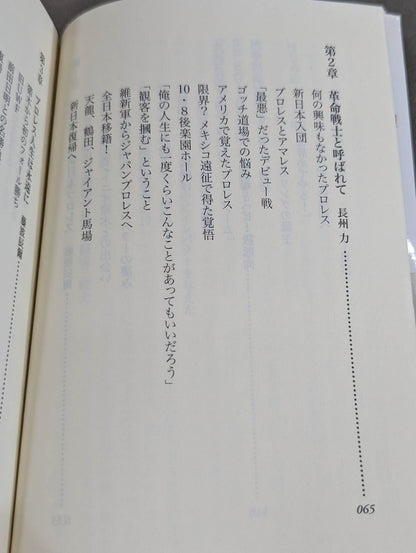 第2章 革命戦士と呼ばれて 長州 力 …… 065
何の興味もなかったプロレス
新日本入団
プロレスとアマレス
「最悪」だったデビュー戦
ゴッチ道場での悩み
アメリカで覚えたプロレス
限界？ メキシコ遠征で得た覚悟
10・8後楽園ホール
「俺の人生にも一度くらいこんなことがあってもいいだろう」
「観客を掴む」ということ
維新軍からジャパンプロレスへ
全日本移籍！
天龍、鶴田、ジャイアント馬場
新日本復帰へ